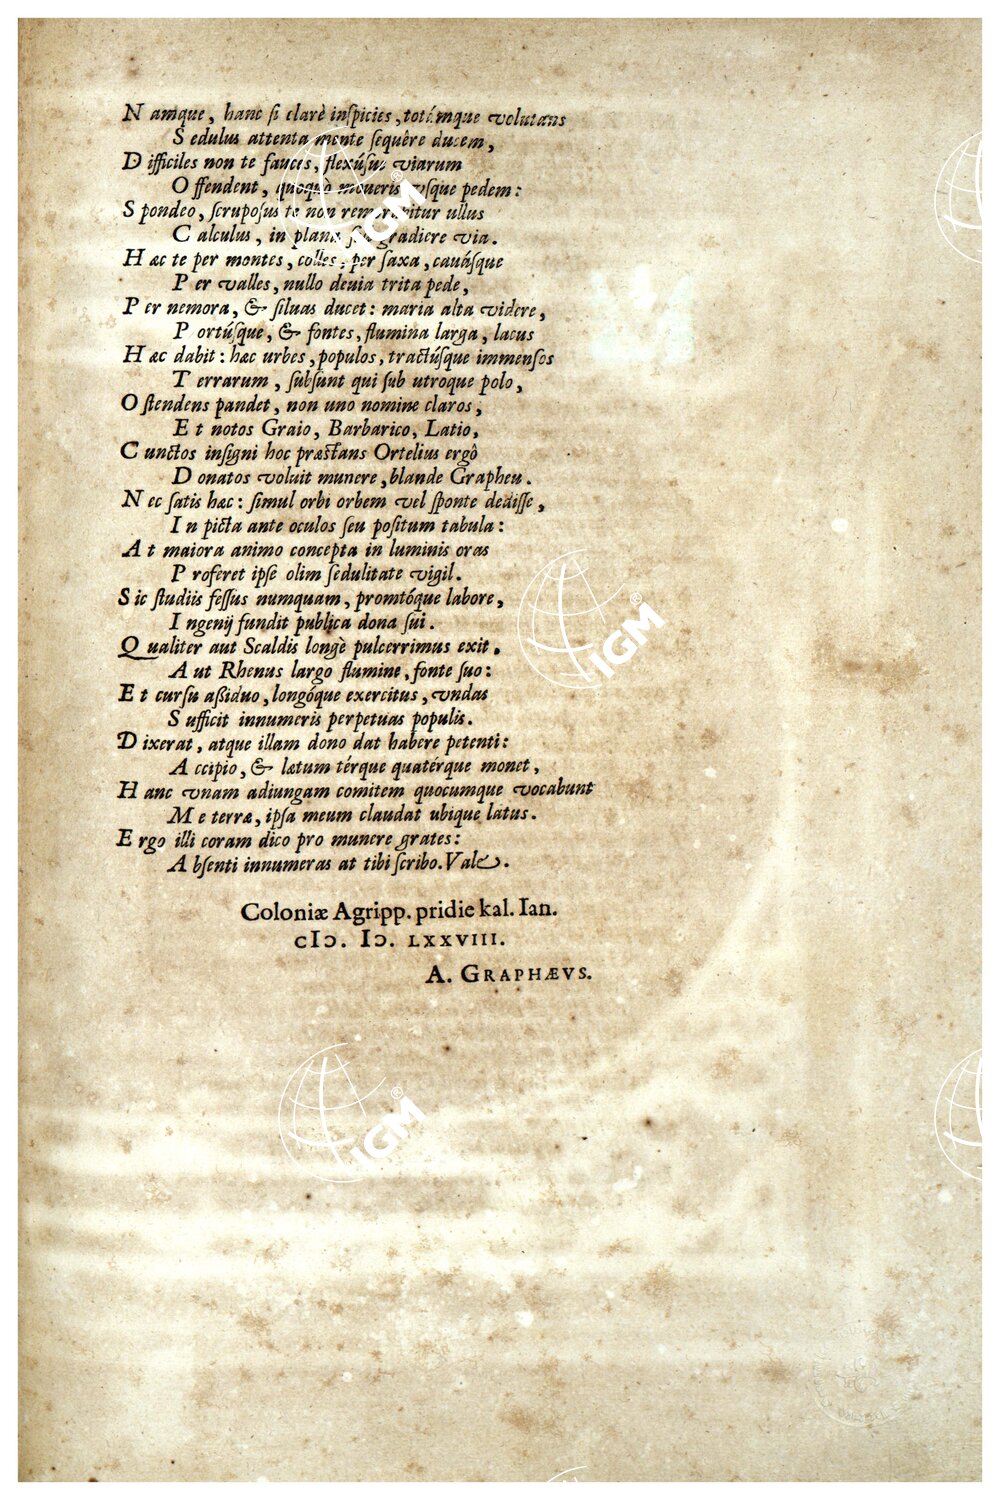 Namque, hanc si clarè inspicies, totámque volutans
Sedulus attenta mente sequêre ducem,
Difficiles non te fauces, flexúsue viarum
Offendent, quoquò moueris vsque pedem:
Spondeo, scruposus te non remorabitur ullus
Calculus, in plana seu gradiere via.
Hæc te per montes, colles, per saxa, cauásque
Per valles, nullo deuia trita pede,
Per nemora, & siluas ducet: maria alta videre,
Portúsque, & fontes, flumina larga, lacus
Hæc dabit: hæc urbes, populos, tractúsque immensos
Terrarum, subsunt qui sub utroque polo,
Ostendens pandet, non uno nomine claros,
Et notos Graio, Barbarico, Latio,
Cunctos insigni hoc præstans Ortelius ergô
Donatos voluit munere, blande Grapheu.
Nec satis hæc: simul orbi orbem vel sponte dedisse,
In picta ante oculos seu positum tabula:
At maiora animo concepta in luminis oras
Proferet ipse olim sedulitate vigil.
Sic studiis fessus numquam, promtóque labore,
Ingenij fundit publica dona sui.
Qualiter aut Scaldis longè pulcerrimus exit,
Aut Rhenus largo flumine, fonte suo:
Et cursu aßiduo, longóque exercitus, vndas
Sufficit innumeris perpetuas populis.
Dixerat, atque illam dono dat habere petenti:
Accipio, & lætum térque quatérque monet,
Hanc vnam adiungam comitem quocumque vocabunt
Me terræ, ipsa meum claudat ubique latus.
Ergo illi coram dico pro munere grates:
Absenti innumeras at tibi scribo. Vale.
Coloniæ Agripp. pridie kal. Ian.
cIɔ. Iɔ. LXXVIII.
A. GRAPHÆVS.
IGM
IGM
IGM